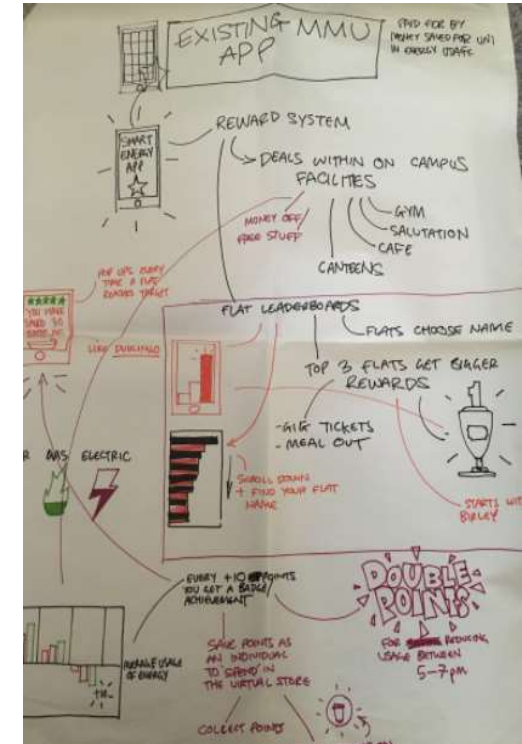 EXISTING MMU
APP
PAID FOR BY
MONEY SAVED FOR UNI
IN ENERGY USAGE
SMART
ENERGY
APP
REWARD SYSTEM
DEALS WITHIN ON CAMPUS
FACILITES
MONEY OFF/
FREE STUFF
GYM
SALUTATION
CAFE
CANTEENS
POP UPS EVERY
TIME A FLAT
REACHES TARGET
YOU HAVE
SAVED SO
FLAT LEADERBOARDS
FLATS CHOOSE NAME
LIKE DUOLINGO
1
TOP 3 FLATS GET BIGGER
REWARDS
- GIG TICKETS
- MEAL OUT
1
SCROLL DOWN
+ FIND YOUR FLAT
NAME
STARTS WIT
BIRLEY
R GAS ELECTRIC
EVERY +10 POINTS
YOU GET A BADGE
ACHIEVEMENT
DOUBLE
POINTS
FOR REDUCING
USAGE BETWEEN
5-7pm
AVERAGE USAGE
OF ENERGY
SAVE POINTS AS
AN INDIVIDUAL
TO 'SPEND' IN
THE VIRTUAL STORE
COLLECT POINTS